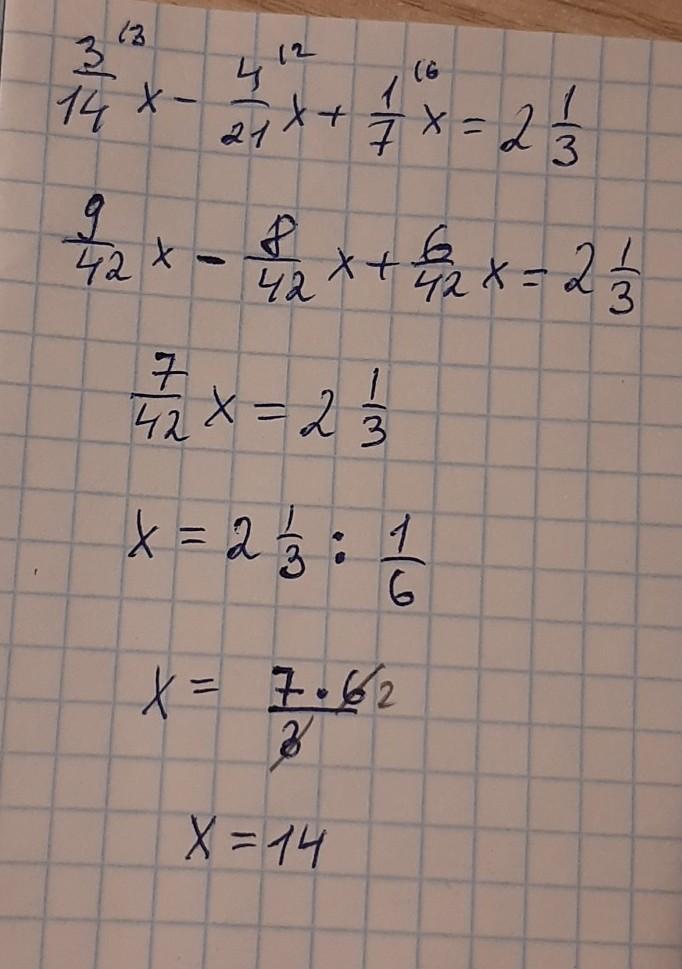 3/14 (3 x - 4/21 (2 x + 1/7 (6 x = 2 1/3
9/42 x - 8/42 x + 6/42 x = 2 1/3
7/42 x = 2 1/3
x = 2 1/3 : 1/6
x = 7 · 6 2 / 3
x = 14